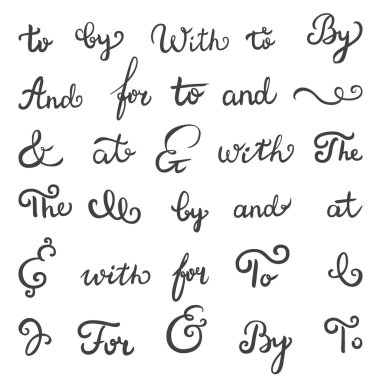 to by With to By
And for to and
& at & with The
The by and at
& with for To &
For & By To